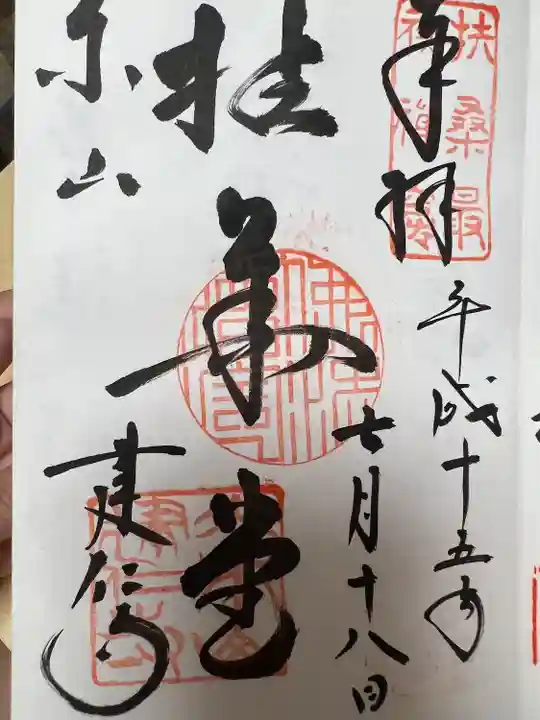 奉拝
扶桑最
初禅窟
平成十五年
七月十八日
拈華堂
东山
建仁寺